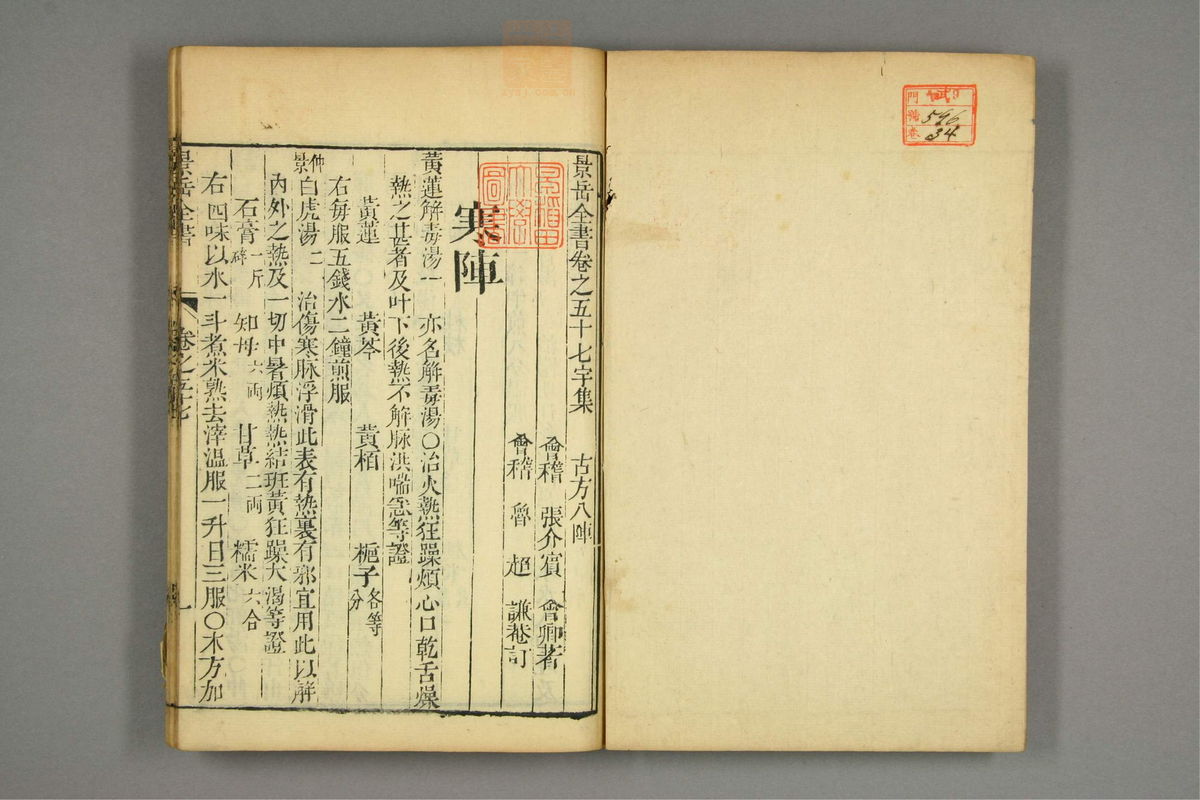 景岳全書卷之五十七字集　古方八陣
會稽　張介賓　會卿著
會稽　魯　超　謙菴訂
寒陣
黃蓮解毒湯一　亦名解毒湯○治火熱狂躁煩心口乾舌燥
熱之甚者及吐下後熱不解脉洪喘急等證
黃蓮　黃芩　黃栢　梔子各等分
右每服五錢水二鐘煎服
仲景白虎湯二　治傷寒脉浮滑此表有熱裏有邪宜用此以解
內外之熱及一切中暑煩熱熱結斑黃狂躁大渴等證
石膏一斤碎　知母六両　甘草二両　糯米六合
右四味以水一斗煮米熟去滓溫服一升日三服○木方加
景岳全書
卷之五十七
一
早稻田大學圖書
門
號
卷
596
34